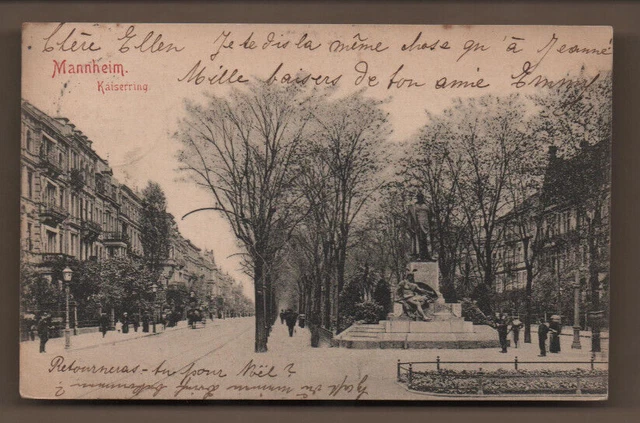 Chère Ellen Je te dis la même chose qu'à Jeanne
Mannheim.
Mille baisers de ton amie Emmy
Kaiserring.
Retourneras-tu pour Noël?